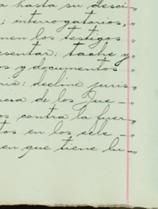 a hasta su desci-
; interrogatorios,
men los testigos
esentar; tache y
s y documentos
ria; decline juris
ncia de los Jue-
os contra la ejer
tos en los cele-
en que tiene lu-